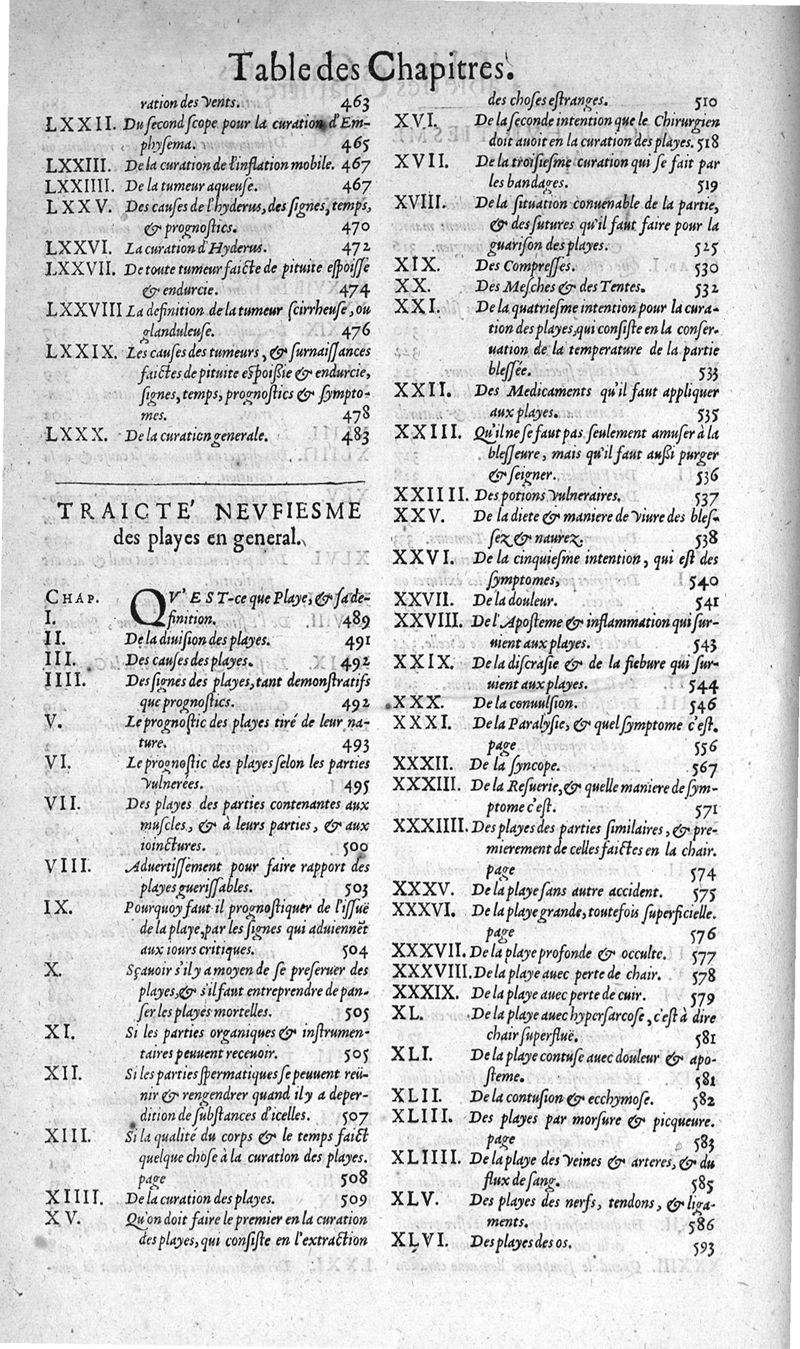 Table des Chapitres.
ration des vents. 463
LXXII. Du second scope pour la curation d'Em-
physema. 465
LXXIII. De la curation de l'inflation mobile. 467
LXXIIII. De la tumeur aqueuse. 467
LXXV. Des causes de l'hyderus, des signes, temps,
& prognostics. 470
LXXVI. La curation d'Hyderus. 472
LXXVII. De toute tumeur faicte de pituite espoisse
& endurcie. 474
LXXVIII La definition de la tumeur scirrheuse, ou
glanduleuse. 476
LXXIX. Les causes des tumeurs, & surnaissances
faictes de pituite espoißie & endurcie,
signes, temps, prognostics & sympto-
mes. 478
LXXX. De la curation generale. 483
TRAICTE' NEVFIESME
des playes en general.
CHAP. QV'EST-ce que Playe, & sa de-
I. finition. 489
II. De la diuision des playes. 491
III. Des causes des playes. 492
IIII. Des signes des playes, tant demonstratifs
que prognostics. 492
V. Le prognostic des playes tiré de leur na-
ture. 493
VI. Le prognostic des playes selon les parties
vulnerées. 495
VII. Des playes des parties contenantes aux
muscles, & à leurs parties, & aux
ioinctures. 500
VIII. Aduertissement pour faire rapport des
playes guerissables. 503
IX. Pourquoy faut il prognostiquer de l'issuë
de la playe, par les signes qui aduiennēt
aux iours critiques. 504
X. Sçauoir s'il y a moyen de se preseruer des
playes, & s'il faut entreprendre de pan-
ser les playes mortelles. 505
XI. Si les parties organiques & instrumen-
taires peuuent receuoir. 505
XII. Si les parties spermatiques se peuuent reü-
nir & rengendrer quand il y a deper-
dition de substances d'icelles. 507
XIII. Si la qualité du corps & le temps faict
quelque chose à la curation des playes.
page 508
XIIII. De la curation des playes. 509
XV. Qu'on doit faire le premier en la curation
des playes, qui consiste en l'extraction
des choses estranges. 510
XVI. De la seconde intention que le Chirurgien
doit auoit en la curation des playes. 518
XVII. De la troisiesme curation qui se fait par
les bandages. 519
XVIII. De la situation conuenable de la partie,
& des sutures qu'il faut faire pour la
guarison des playes. 525
XIX. Des Compresses. 530
XX. Des Mesches & des Tentes. 532
XXI. De la quatriesme intention pour la cura-
tion des playes, qui consiste en la conser-
uation de la temperature de la partie
blessée. 533
XXII. Des Medicaments qu'il faut appliquer
aux playes. 535
XXIII. Qu'il ne se faut pas seulement amuser à la
blesseure, mais qu'il faut außi purger
& seigner. 536
XXIIII. Des potions vulneraires. 537
XXV. De la diete & maniere de viure des bles-
sez & naurez. 538
XXVI. De la cinquiesme intention, qui est des
symptomes, 540
XXVII. De la douleur. 541
XXVIII. De l'Aposteme & inflammation qui sur-
uient aux playes. 543
XXIX. De la discrasie & de la fiebure qui sur-
uient aux playes. 544
XXX. De la conuulsion. 546
XXXI. De la Paralysie, & quel symptome c'est.
page 556
XXXII. De la syncope. 567
XXXIII. De la Resuerie, & quelle maniere de sym-
ptome c'est. 571
XXXIIII. Des playes des parties similaires, & pre-
mierement de celles faictes en la chair.
page 574
XXXV. De la playe sans autre accident. 575
XXXVI. De la playe grande, toutefois superficielle.
page 576
XXXVII. De la playe profonde & occulte. 577
XXXVIII. De la playe auec perte de chair. 578
XXXIX. De la playe auec perte de cuir. 579
XL. De la playe auec hypersarcose, c'est à dire
chair superfluë. 581
XLI. De la playe contuse auec douleur & apo-
steme. 581
XLII. De la contusion & ecchymose. 582
XLIII. Des playes par morsure & picqueure.
page 583
XLIIII. De la playe des veines & arteres, & du
flux de sang. 585
XLV. Des playes des nerfs, tendons, & liga-
ments. 586
XLVI. Des playes des os. 593